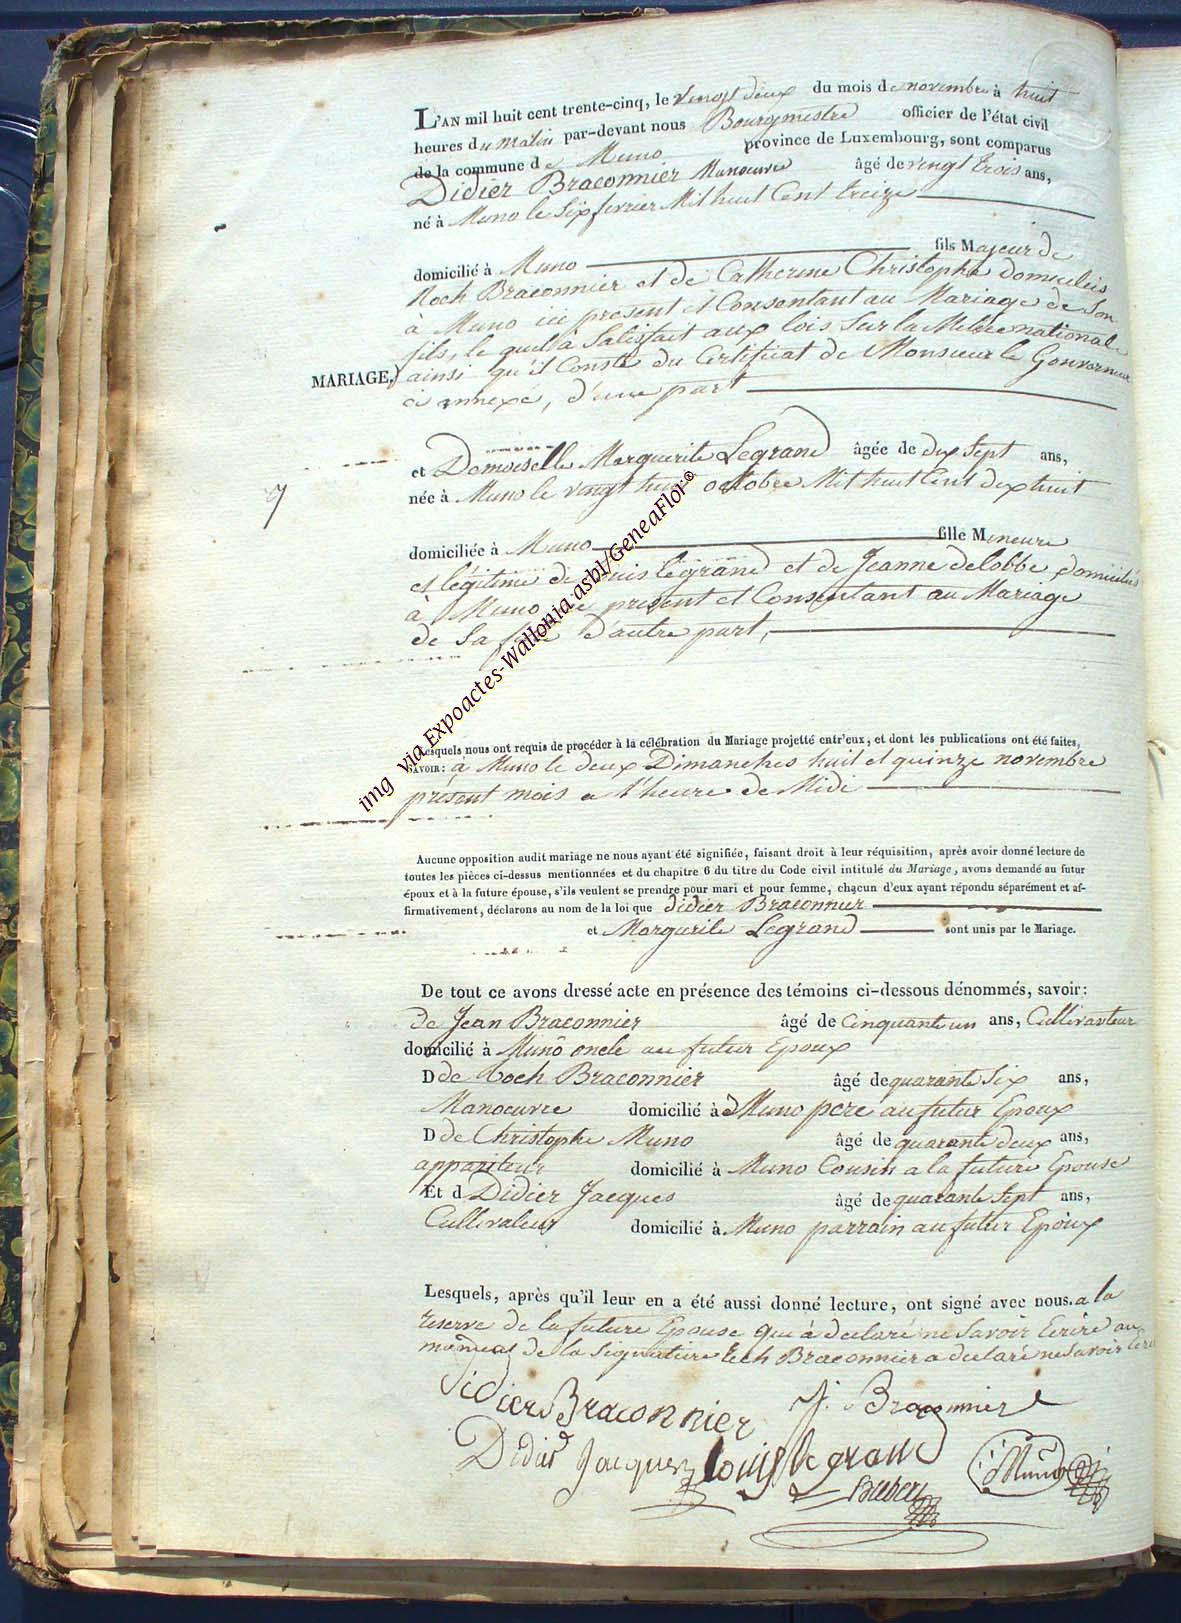 L'AN mil huit cent trente-cinq, le vingt deux du mois de novembre à huit
heures du matin par-devant nous Bourgmestre officier de l'état civil
de la commune de Muno province de Luxembourg, sont comparus
Didier Braconnier Manoeuvre âgé de vingt trois ans,
né à Muno le Six fevrier Mil huit Cent treize
domicilié à Muno fils Majeur de
Roch Braconnier et de Catherine Christophe domiciliés
à Muno ici present et Consentant au Mariage de Son
fils, le quel à Satisfait aux lois Sur la Milice nationale
MARIAGE. ainsi qu'il Conste du Certificat de Monsieur le Gouverneur
ci annexé, d'une part
et Demoiselle Marguerite Legrand âgée de dix Sept ans,
9
née à Muno le vingt huit octobre Mil huit Cent dix huit
domiciliée à Muno fille Mineure
et légitime de Louis legrand et de Jeanne delobbe domiciliés
à Muno ici present et Consentant au Mariage
de Sa fille d'autre part,
Lesquels nous ont requis de procéder à la célébration du Mariage projetté entr'eux, et dont les publications ont été faites,
SAVOIR: à Muno le deux Dimanches huit et quinze novembre
présent mois a l'heure de Midi
Aucune opposition audit mariage ne nous ayant été signifiée, faisant droit à leur réquisition, après avoir donné lecture de
toutes les pièces ci-dessus mentionnées et du chapitre 6 du titre du Code civil intitulé du Mariage, avons demandé au futur
époux et à la future épouse, s'ils veulent se prendre pour mari et pour femme, chacun d'eux ayant répondu séparément et af-
firmativement, déclarons au nom de la loi que didier Braconnier
et Marguerite Legrand sont unis par le Mariage.
De tout ce avons dressé acte en présence des témoins ci-dessous dénommés, savoir:
de Jean Braconnier âgé de Cinquante un ans, Cultivateur
domicilié à Muno oncle au futur Epoux
D de Roch Braconnier âgé de quarante Six ans,
Manoeuvre domicilié à Muno pere au futur Epoux
D de Christophe Muno âgé de quarante deux ans,
appariteur domicilié à Muno Cousin a la future Epouse
Et d Didier Jacques âgé de quarante Sept ans,
Cultivateur domicilié à Muno parrain au futur Epoux
Lesquels, après qu'il leur en a été aussi donné lecture, ont signé avec nous. a la
reserve de la future Epouse que à declaré ne Savoir Ecrire au
moment de la Signature Roch Braconnier a declaré ne Savoir Ecri
Didier Braconnier J. Braconnier
Didier Jacques Louis Legrand Muno
img via Expoactes-Wallonia asbl/GeneaFlor©